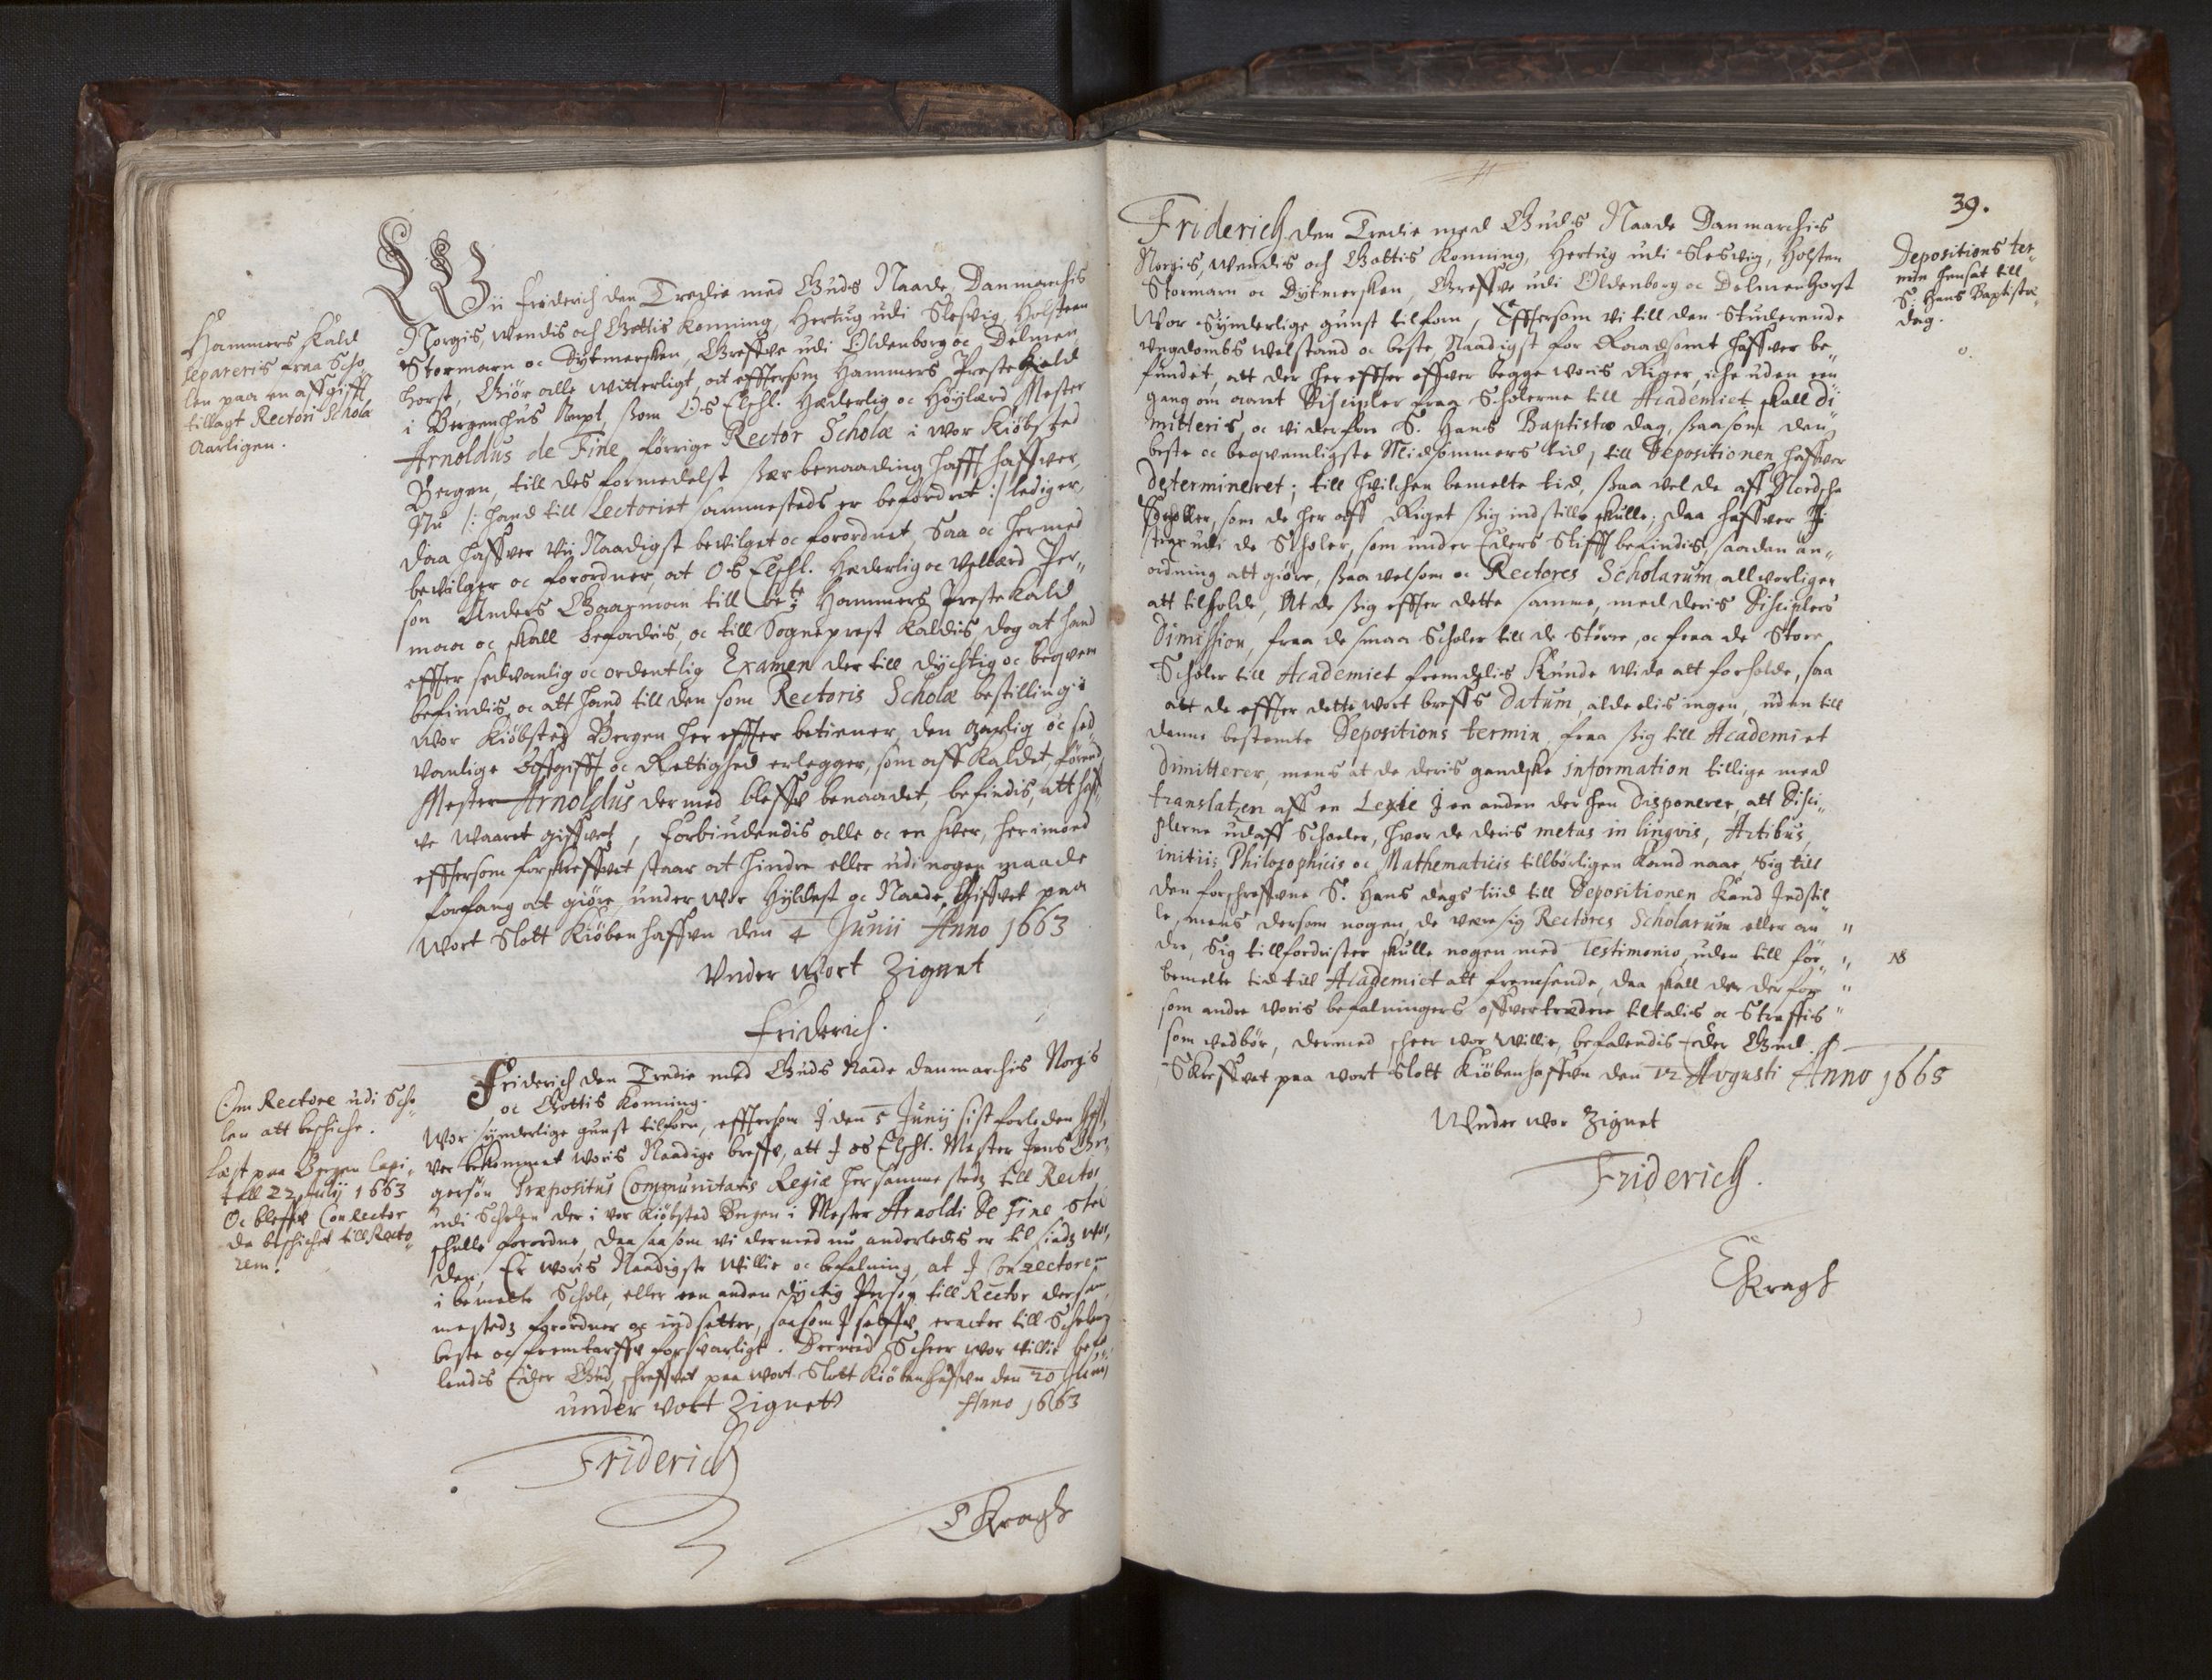 Hammers Kald
sepereris fraa Scho„
len paa en affgifft
tillagt Rectori Scholæ
Aarligen.
Wii Friderich den Tredie med Guds Naade, Danmarchis
Norgis, Wendis och Gottis Konning, Hertug udi Slesvig, Holsteen
Stormarn oc Dytmersken, Greffve udi Oldenborg oc Delmen„
horst, Giör alle witterligt, at efftersom Hammers Preste Kald
i Bergenhus Ampt, som Os Elschl. Hæderlig oc Höylærd Mester
Arnoldus de Fine, förrige Rector Scholæ i wor Kiöbsted
Bergen, till des formedelst sær benaading hafft haffver,
Nu /: hand till Lectoriet sammesteds er befordret :/ lediger,
daa haffver Vii Naadigst bevilget oc forordnet, Saa oc hermed
bevilger oc forordner, at Os Elschl. Hæderlig oc Vellærd Per„
son Anders Gaarman till bete Hammers Preste Kald
maa oc skall befordris, oc till Sogneprest kaldis, dog at hand
effter sedvanlig oc ordentlig Examen der till dychtig oc beqvem
befindis, oc att hand till den som Rectoris Scholæ bestilling i
wor Kiöbsted Bergen her effter betiener, den aarlig oc sed„
vanlige Affgifft oc Rettighed erlegger, som aff Kaldet, förend
Mester Arnoldus der med bleffv benaadet, befindis, att haff„
ve waaret giffvet, Forbiudendis alle oc en hver, herimod
efftersom forskreffvet staar at hindre eller udi nogen maade
forfang at giöre, under wor Hyldest oc Naade, Giffvet paa
wort Slott Kiöbenhaffvn den 4 Junii Anno 1663
Vnder wort Zignet
Friderich.
Om Rectore udi Scho„
len att beschiche.
Læst paa Bergen Capi„
tell 22 Julij 1663
Oc bleff Conrector
da beschichet till Recto„
rem.
Friderich den Tredie med Guds Naade Danmarchis Norgis
oc Gottis Konning.
Wor synderlige gunst tilforn, efftersom I den 5 Junij sist forleden haff„
ver bekommet woris Naadige breff, att I os Elschl. Mester Jens
gersön Præpositus Communitatis Regiæ her samme stedz till Rector
udi Scholen der i vor Kiöbsted Bergen i Mester Arnoldi de Fine sted
schulle forordne, daa saasom vi dermed nu anderledis er til sinds wor„
den, Er woris Naadigste Willie oc befalning, at I Conrectorem
i bemelte Schole, eller een anden dyctig Person till Rector der sam„
mestedz forordner oc indsetter, saasom I selffv eracter till Scholens
beste oc fremtarff forsvarligt. Dermed Scheer wor Villie befa„
lendis Eder Gud, schreffvet paa wort Slott Kiöbenhaffvn den 20 Junij
under vort Zignet Anno 1663
Friderich
E Kragh
39.
Depositions ter„
min hensat till
S. Hans Baptistæ
dag.
Friderich den Tredie med Guds Naade Danmarchis
Norgis, Wendis och Gottis Konning, Hertug udi Slesvig, Holsten
Stormarn oc Dytmersken, Greffve udi Oldenborg oc Delmenhorst
Wor Synderlige gunst tilforn, Efftersom vi till den Studerende
ungdombs welstand oc beste, Naadigst for Raadsomt haffver be„
fundet, att der her effter offver begge woris Riger, iche uden een
gang om aaret Discipler fraa Scholerne till Academiet skall di„
mitteris, oc vi derfor S. Hans Baptistæ dag, saasom den
beste oc beqvemligste Midsommers tid, till Depositionen haffver
determineret; till hvilchen bemelte tid, saa vel de aff Nordsche
Scholler, som de her aff Riget sig indstille skulle; daa haffver I
udi de Scholer, som under Eders Stifft befindis, saadan an„
ordning att giöre, saa velsom oc Rectores Scholarum allvorligen
att tilholde, At de sig effter dette samme, med deris Disciplers
Dimission, fraa de smaa Scholer till de Större, oc fraa de Store
Scholer till Academiet fremdelis kunde wide att forholde, saa
att de effter dette wort breffs Datum, aldeelis ingen, uden till
denne bestemte Depositions termin fraa sig till Academiet
Dimitterer, mens at de deris gandske information tillige med
translatzen aff en Lexie I en anden der hen Disponerer, att Disci„
plerne udaff Scholer, hvor de deris metas in lingvis, Artibus,
initiis Philosophicis oc Mathematicis tillbörligen kand naae, Sig till
den forschreffvne S. Hans dags tiid till Depositionen kand Indstil„
le, mens dersom nogen, de være sig Rectores Scholarum eller an„ "
dre, Sig tillfordrister skulle nogen med Testimonio, uden till för„ " NB
bemelte tid till Academiet att fremsende, daa skall der derfor "
som andre voris befalningers offvertrædere tiltalis oc Straffis "
som vedbör, dermed scheer wor Willie, befalendis Eder Gud.
Skreffvet paa wort Slott Kiöbenhaffvn den 12 Avgusti Anno 1665
Vnder wor Zignet
Friderich.
E Kragh